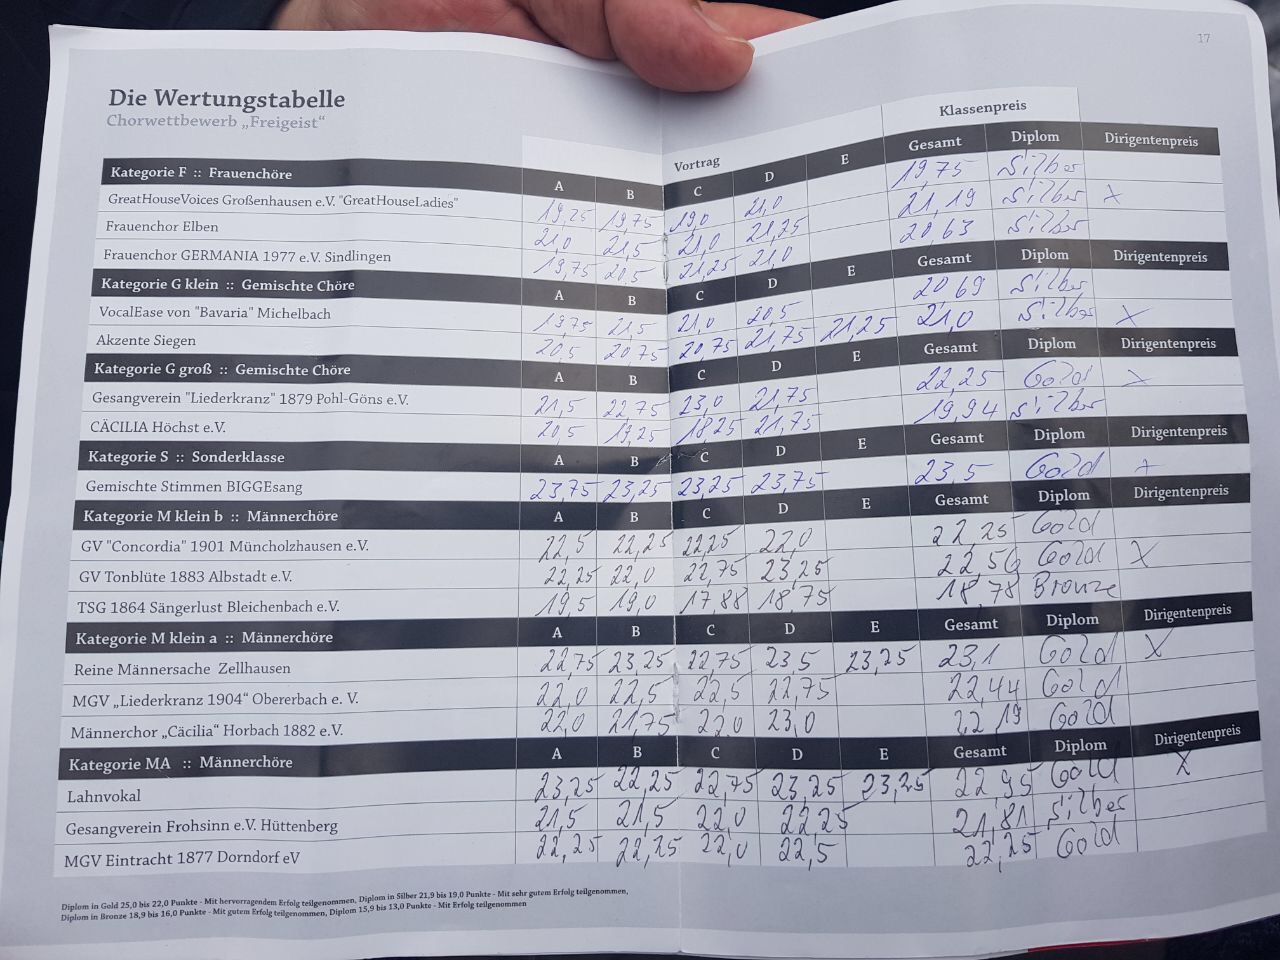 17
Die Wertungstabelle
Chorwettbewerb „Freigeist“
Klassenpreis
Vortrag
Kategorie F :: Frauenchöre A B C D E Gesamt Diplom Dirigentenpreis
GreatHouseVoices Großenhausen e.V. "GreatHouseLadies" 19,25 19,75 19,0 21,0 19,75 Silber
Frauenchor Elben 21,0 21,5 21,0 21,25 21,19 Silber X
Frauenchor GERMANIA 1977 e.V. Sindlingen 19,75 20,5 21,25 21,0 20,63 Silber
Kategorie G klein :: Gemischte Chöre A B C D E Gesamt Diplom Dirigentenpreis
VocalEase von "Bavaria" Michelbach 19,75 21,5 21,0 20,5 20,69 Silber
Akzente Siegen 20,5 20,75 20,75 21,75 21,25 21,0 Silber X
Kategorie G groß :: Gemischte Chöre A B C D E Gesamt Diplom Dirigentenpreis
Gesangverein "Liederkranz" 1879 Pohl-Göns e.V. 21,5 22,75 23,0 21,75 22,25 Gold X
CÄCILIA Höchst e.V. 20,5 19,25 18,25 21,75 19,94 Silber
Kategorie S :: Sonderklasse A B C D E Gesamt Diplom Dirigentenpreis
Gemischte Stimmen BIGGEsang 23,75 23,25 23,25 23,75 23,5 Gold X
Kategorie M klein b :: Männerchöre A B C D E Gesamt Diplom Dirigentenpreis
GV "Concordia" 1901 Müncholzhausen e.V. 22,5 22,25 22,25 22,0 22,25 Gold
GV Tonblüte 1883 Albstadt e.V. 22,25 22,0 22,75 23,25 22,56 Gold X
TSG 1864 Sängerlust Bleichenbach e.V. 19,5 19,0 17,88 18,75 18,78 Bronze
Kategorie M klein a :: Männerchöre A B C D E Gesamt Diplom Dirigentenpreis
Reine Männersache Zellhausen 22,75 23,25 22,75 23,5 23,25 23,1 Gold X
MGV „Liederkranz 1904“ Obererbach e. V. 22,0 22,5 22,5 22,75 22,44 Gold
Männerchor „Cäcilia“ Horbach 1882 e.V. 22,0 21,75 22,0 23,0 22,19 Gold
Kategorie MA :: Männerchöre A B C D E Gesamt Diplom Dirigentenpreis
Lahnvokal 23,25 22,25 22,75 23,25 23,25 22,95 Gold X
Gesangverein Frohsinn e.V. Hüttenberg 21,5 21,5 22,0 22,25 21,81 Silber
MGV Eintracht 1877 Dorndorf eV 22,25 22,25 22,0 22,5 22,25 Gold
Diplom in Gold 25,0 bis 22,0 Punkte - Mit hervorragendem Erfolg teilgenommen, Diplom in Silber 21,9 bis 19,0 Punkte - Mit sehr gutem Erfolg teilgenommen,
Diplom in Bronze 18,9 bis 16,0 Punkte - Mit gutem Erfolg teilgenommen, Diplom 15,9 bis 13,0 Punkte - Mit Erfolg teilgenommen